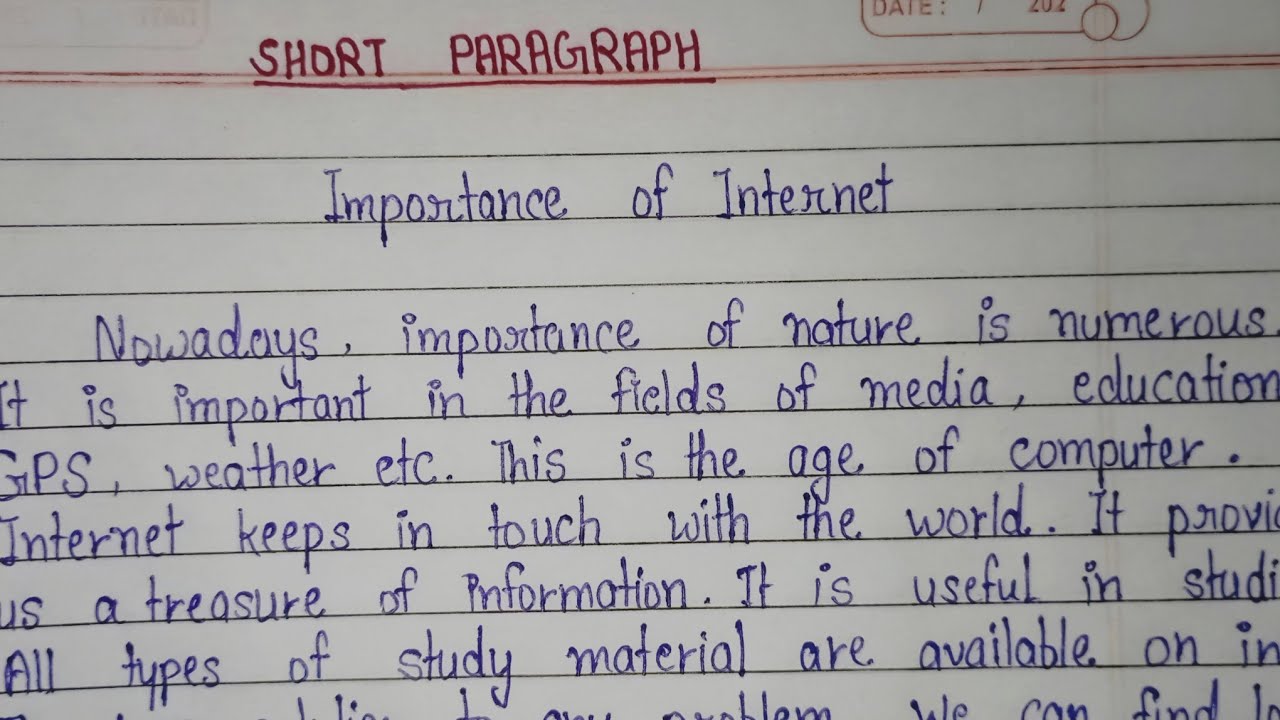 DATE: / 202
SHORT PARAGRAPH
Importance of Internet
Nowadays, importance of nature is numerous.
It is important in the fields of media, education
GPS, weather etc. This is the age of computer.
Internet keeps in touch with the world. It provid
us a treasure of information. It is useful in studi
All types of study material are available on in
to any problem. We can find